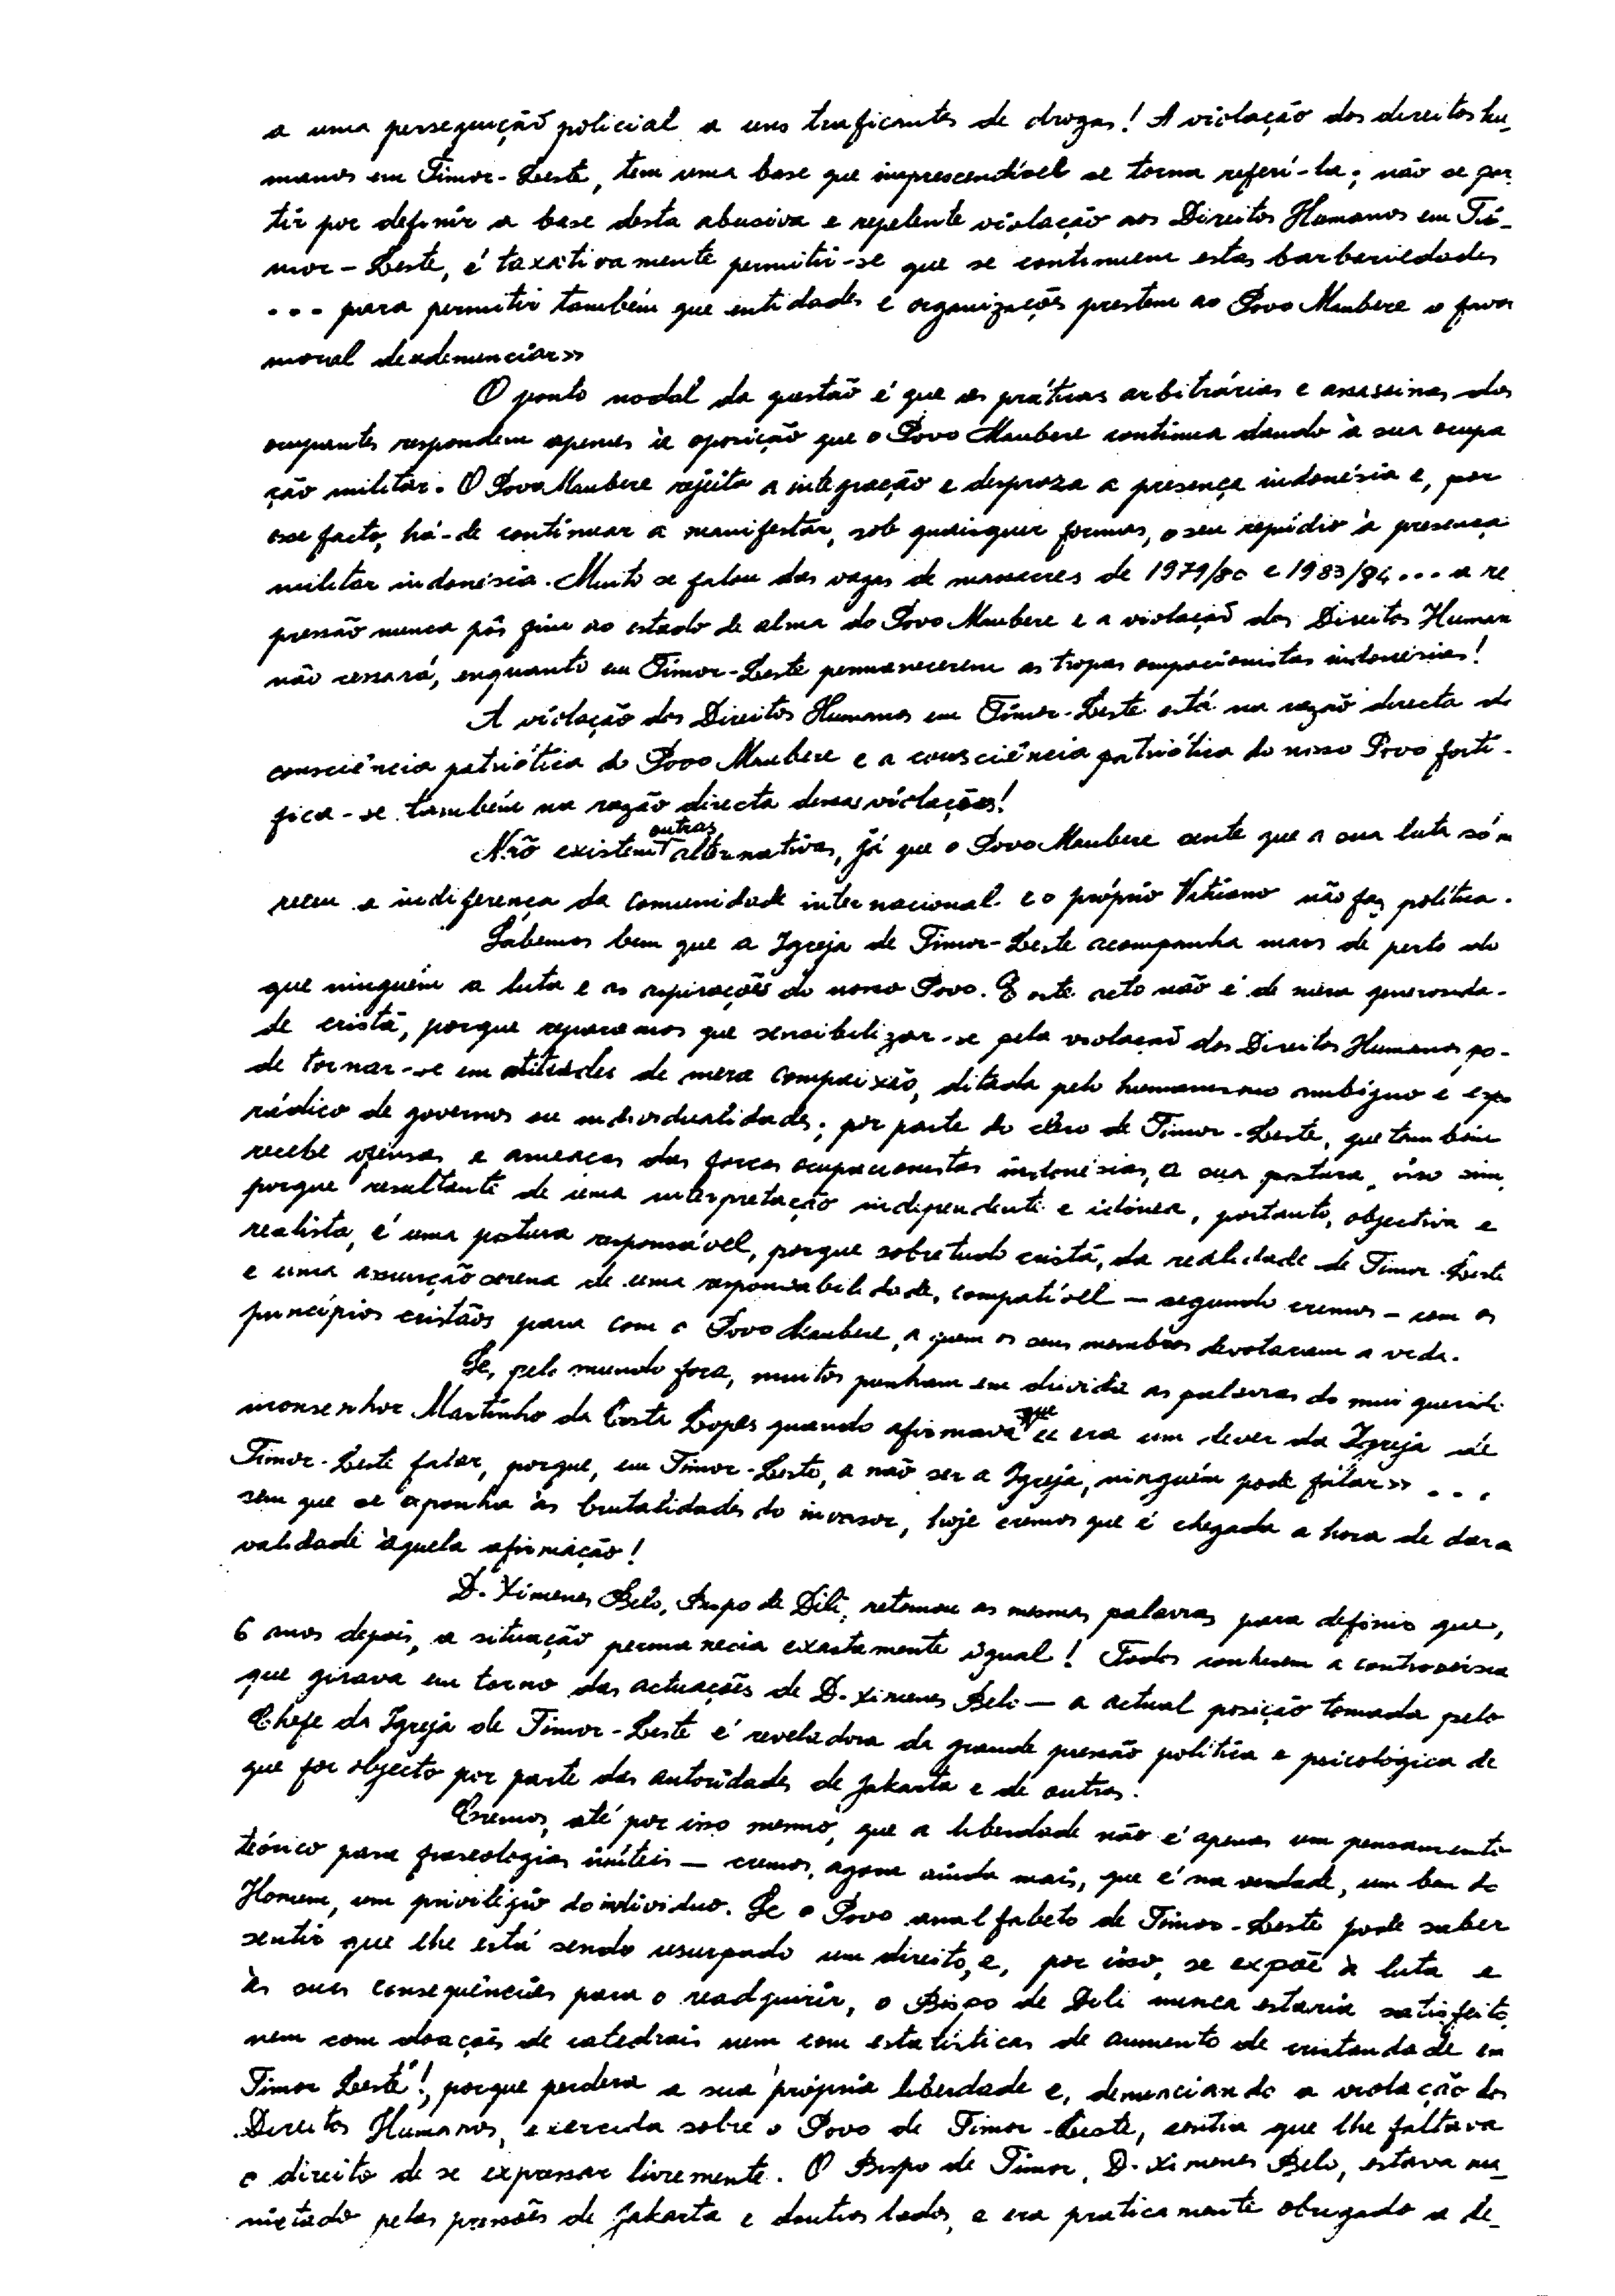 a uma perseguição policial a uns traficantes de drogas! A violação dos direitos hu-
manos em Timor-Leste, tem uma base que imprescendível se torna referí-la; não se par-
tir por definir a base desta abusiva e repelente violação aos Direitos Humanos em Ti-
mor-Leste, é taxativamente permitir-se que se continuem estas barbariedades
... para permitir também que entidades e organizações prestem ao Povo Maubere o favor
moral de «denunciar»
O ponto nodal da questão é que as práticas arbitrárias e assassinas dos
ocupantes respondem apenas à oposição que o Povo Maubere continua dando à sua ocupa
ção militar. O Povo Maubere rejeita a integração e despreza a presença indonésia e, por
esse facto, há-de continuar a manifestar, sob quaisquer formas, o seu repúdio à presença
militar indonésia. Muito se falou das vagas de massacres de 1979/80 e 1983/84... a re
pressão nunca pôs fim ao estado de alma do Povo Maubere e a violação dos Direitos Human
não cessará, enquanto em Timor-Leste permanecerem as tropas ocupacionistas indonésias!
A violação dos Direitos Humanos em Timor-Leste está na razão directa da
consciência patriótica do Povo Maubere e a consciência patriótica do nosso Povo forti-
fica-se também na razão directa dessas violações!
Não existem outras alternativas, já que o Povo Maubere sente que a sua luta só m
receu a indiferença da comunidade internacional e o próprio Vaticano não faz política.
Sabemos bem que a Igreja de Timor-Leste acompanha mais de perto do
que ninguém a luta e as aspirações do nosso Povo. E este acto não é de mera generosida-
de cristã, porque reparamos que sensibilizar-se pela violação dos Direitos Humanos po-
de tornar-se em atitudes de mera compaixão, ditada pelo humanismo ambíguo e espo
rádico de governos ou individualidades; por parte do clero de Timor-Leste, que também
recebe ofensas e ameaças das forças ocupacionistas indonésias, a sua postura, isso sim,
porque resultante de uma interpretação independente e idónea, portanto, objectiva e
realista, é uma postura responsável, porque sobretudo cristã, da realidade de Timor-Leste
e uma assunção serena de uma responsabilidade, compatível — segundo cremos — com os
princípios cristãos para com o Povo Maubere, a quem os seus membros devotaram a vida.
Se, pelo mundo fora, muitos punham em dúvida as palavras do mui querido
monsenhor Martinho da Costa Lopes quando afirmava que « era um dever da Igreja de
Timor-Leste falar, porque, em Timor-Leste, a não ser a Igreja, ninguém pode falar» ...
sem que se exponha às brutalidades do invasor, hoje cremos que é chegada a hora de dar a
validade àquela afirmação!
D. Ximenes Belo, Bispo de Dili, retomou as mesmas palavras para definir que,
6 anos depois, a situação permanecia exactamente igual! Todos conhecem a controvérsia
que girava em torno das actuações de D. Ximenes Belo — a actual posição tomada pelo
Chefe da Igreja de Timor-Leste é reveladora da grande pressão política e psicológica de
que foi objecto por parte das autoridades de Jakarta e de outros.
Cremos, até por isso mesmo, que a liberdade não é apenas um pensamento
teórico para fraseologias inúteis — cremos, agora ainda mais, que é na verdade, um bem do
Homem, um privilégio do indivíduo. Se o Povo analfabeto de Timor-Leste pode saber
sentir que lhe está sendo usurpado um direito, e, por isso, se expõe à luta e
às suas consequências para o readquirir, o Bispo de Dili nunca estaria satisfeito,
nem com doações de catedrais nem com estatísticas de aumento de cristandade em
Timor Leste!, porque perdera a sua própria liberdade e, denunciando a violação dos
Direitos Humanos, exercida sobre o Povo de Timor-Leste, sentia que lhe faltava
o direito de se expressar livremente. O Bispo de Timor, D. Ximenes Belo, estava ma-
nietado pelas pressões de Jakarta e doutros lados, e era praticamente obrigado a de-